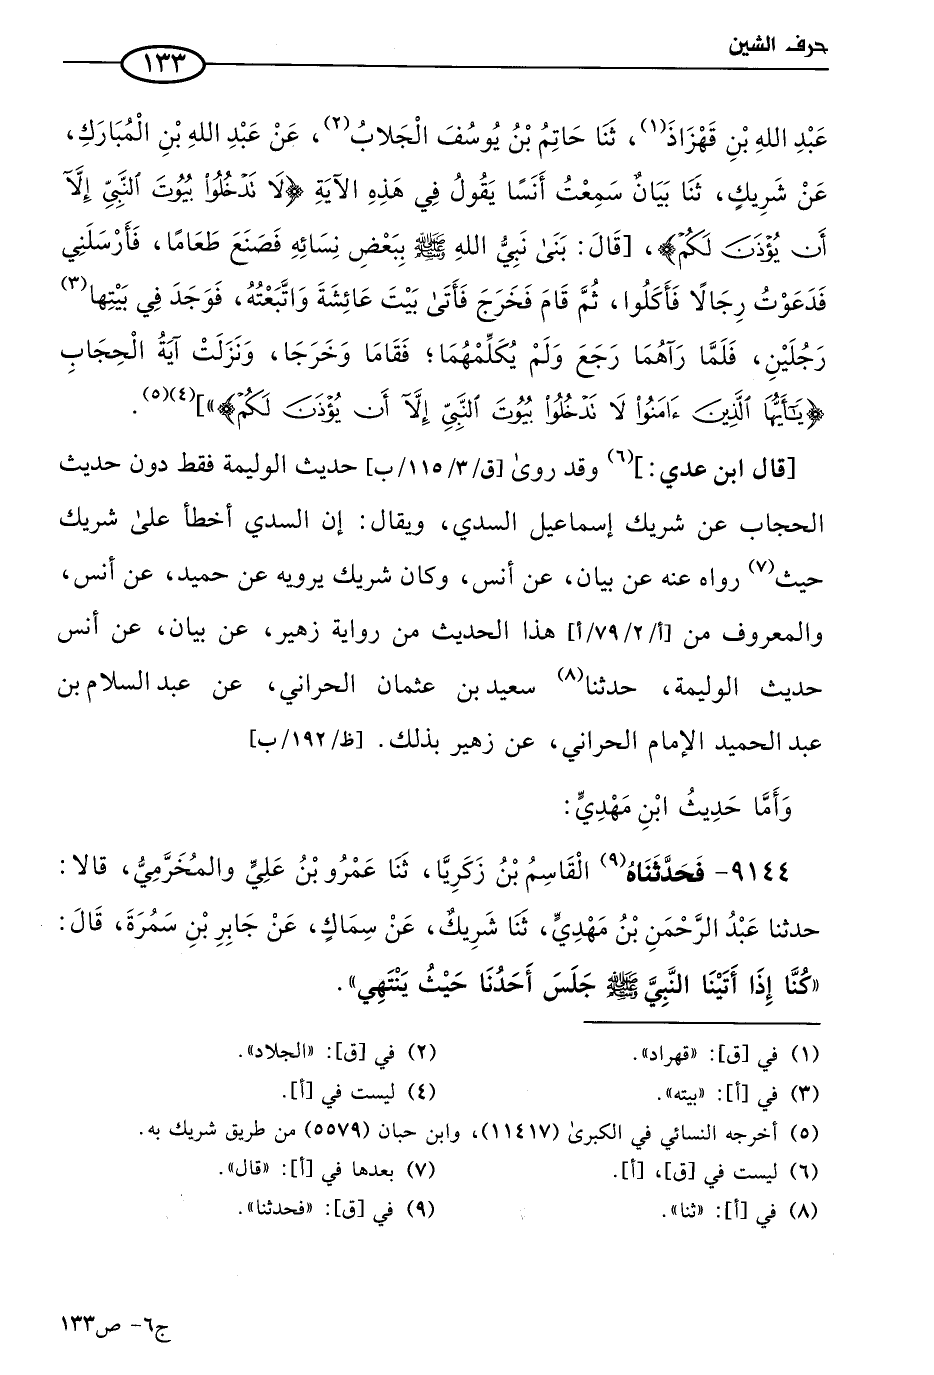 حرف الشين
١٣٣
عَبْدِ اللهِ بْنِ قَهْزَاذَ(١)، ثَنَا حَاتِمُ بْنُ يُوسُفَ الْجَلابُ(٢)، عَنْ عَبْدِ اللهِ بْنِ الْمُبَارَكِ،
عَنْ شَرِيكٍ، ثَنَا بَيَانٌ سَمِعْتُ أَنَسًا يَقُولُ فِي هَذِهِ الآيَةِ ﴿لَا نَدْخُلُواْ بُيُوتَ ٱلنَّبِيِّ إِلَّآ
أَن يُؤْذَنَ لَكُمْ﴾، [قَالَ: بَنَىٰ نَبِيُّ اللهِ ﷺ بِبَعْضِ نِسَائِهِ فَصَنَعَ طَعَامًا، فَأَرْسَلَنِي
فَدَعَوْتُ رِجَالًا فَأَكَلُوا، ثُمَّ قَامَ فَخَرَجَ فَأَتَىٰ بَيْتَ عَائِشَةَ وَاتَّبَعْتُهُ، فَوَجَدَ فِي بَيْتِها(٣)
رَجُلَيْنِ، فَلَمَّا رَآهُمَا رَجَعَ وَلَمْ يُكَلِّمْهُمَا؛ فَقَامَا وَخَرَجَا، وَنَزَلَتْ آيَةُ الْحِجَابِ
﴿يَـٰٓأَيُّهَا ٱلَّذِينَ ءَامَنُواْ لَا نَدْخُلُواْ بُيُوتَ ٱلنَّبِيِّ إِلَّآ أَن يُؤْذَنَ لَكُمْ﴾»](٤)(٥).
[قال ابن عدي:](٦) وقد روىٰ [ق/٣/١١٥/ب] حديث الوليمة فقط دون حديث
الحجاب عن شريك إسماعيل السدي، ويقال: إن السدي أخطأ علىٰ شريك
حيث(٧) رواه عنه عن بيان، عن أنس، وكان شريك يرويه عن حميد، عن أنس،
والمعروف من [أ/٢/٧٩/أ] هذا الحديث من رواية زهير، عن بيان، عن أنس
حديث الوليمة، حدثنا(٨) سعيد بن عثمان الحراني، عن عبد السلام بن
عبد الحميد الإمام الحراني، عن زهير بذلك. [ظ/١٩٢/ب]
وَأَمَّا حَدِيثُ ابْنِ مَهْدِيٍّ:
٩١٤٤- فَحَدَّثَنَاهُ(٩) الْقَاسِمُ بْنُ زَكَرِيَّا، ثَنَا عَمْرُو بْنُ عَلِيٍّ والمُخَرَّمِيُّ، قالا:
حدثنا عَبْدُ الرَّحْمَنِ بْنُ مَهْدِيٍّ، ثَنَا شَرِيكٌ، عَنْ سِمَاكٍ، عَنْ جَابِرِ بْنِ سَمُرَةَ، قَالَ:
«كُنَّا إِذَا أَتَيْنَا النَّبِيَّ ﷺ جَلَسَ أَحَدُنَا حَيْثُ يَنْتَهِي».
(١) في [ق]: «قهراد». (٢) في [ق]: «الجلاد».
(٣) في [أ]: «بيته». (٤) ليست في [أ].
(٥) أخرجه النسائي في الكبرىٰ (١١٤١٧)، وابن حبان (٥٥٧٩) من طريق شريك به.
(٦) ليست في [ق]، [أ]. (٧) بعدها في [أ]: «قال».
(٨) في [أ]: «ثنا». (٩) في [ق]: «فحدثنا».
ج٦- ص١٣٣